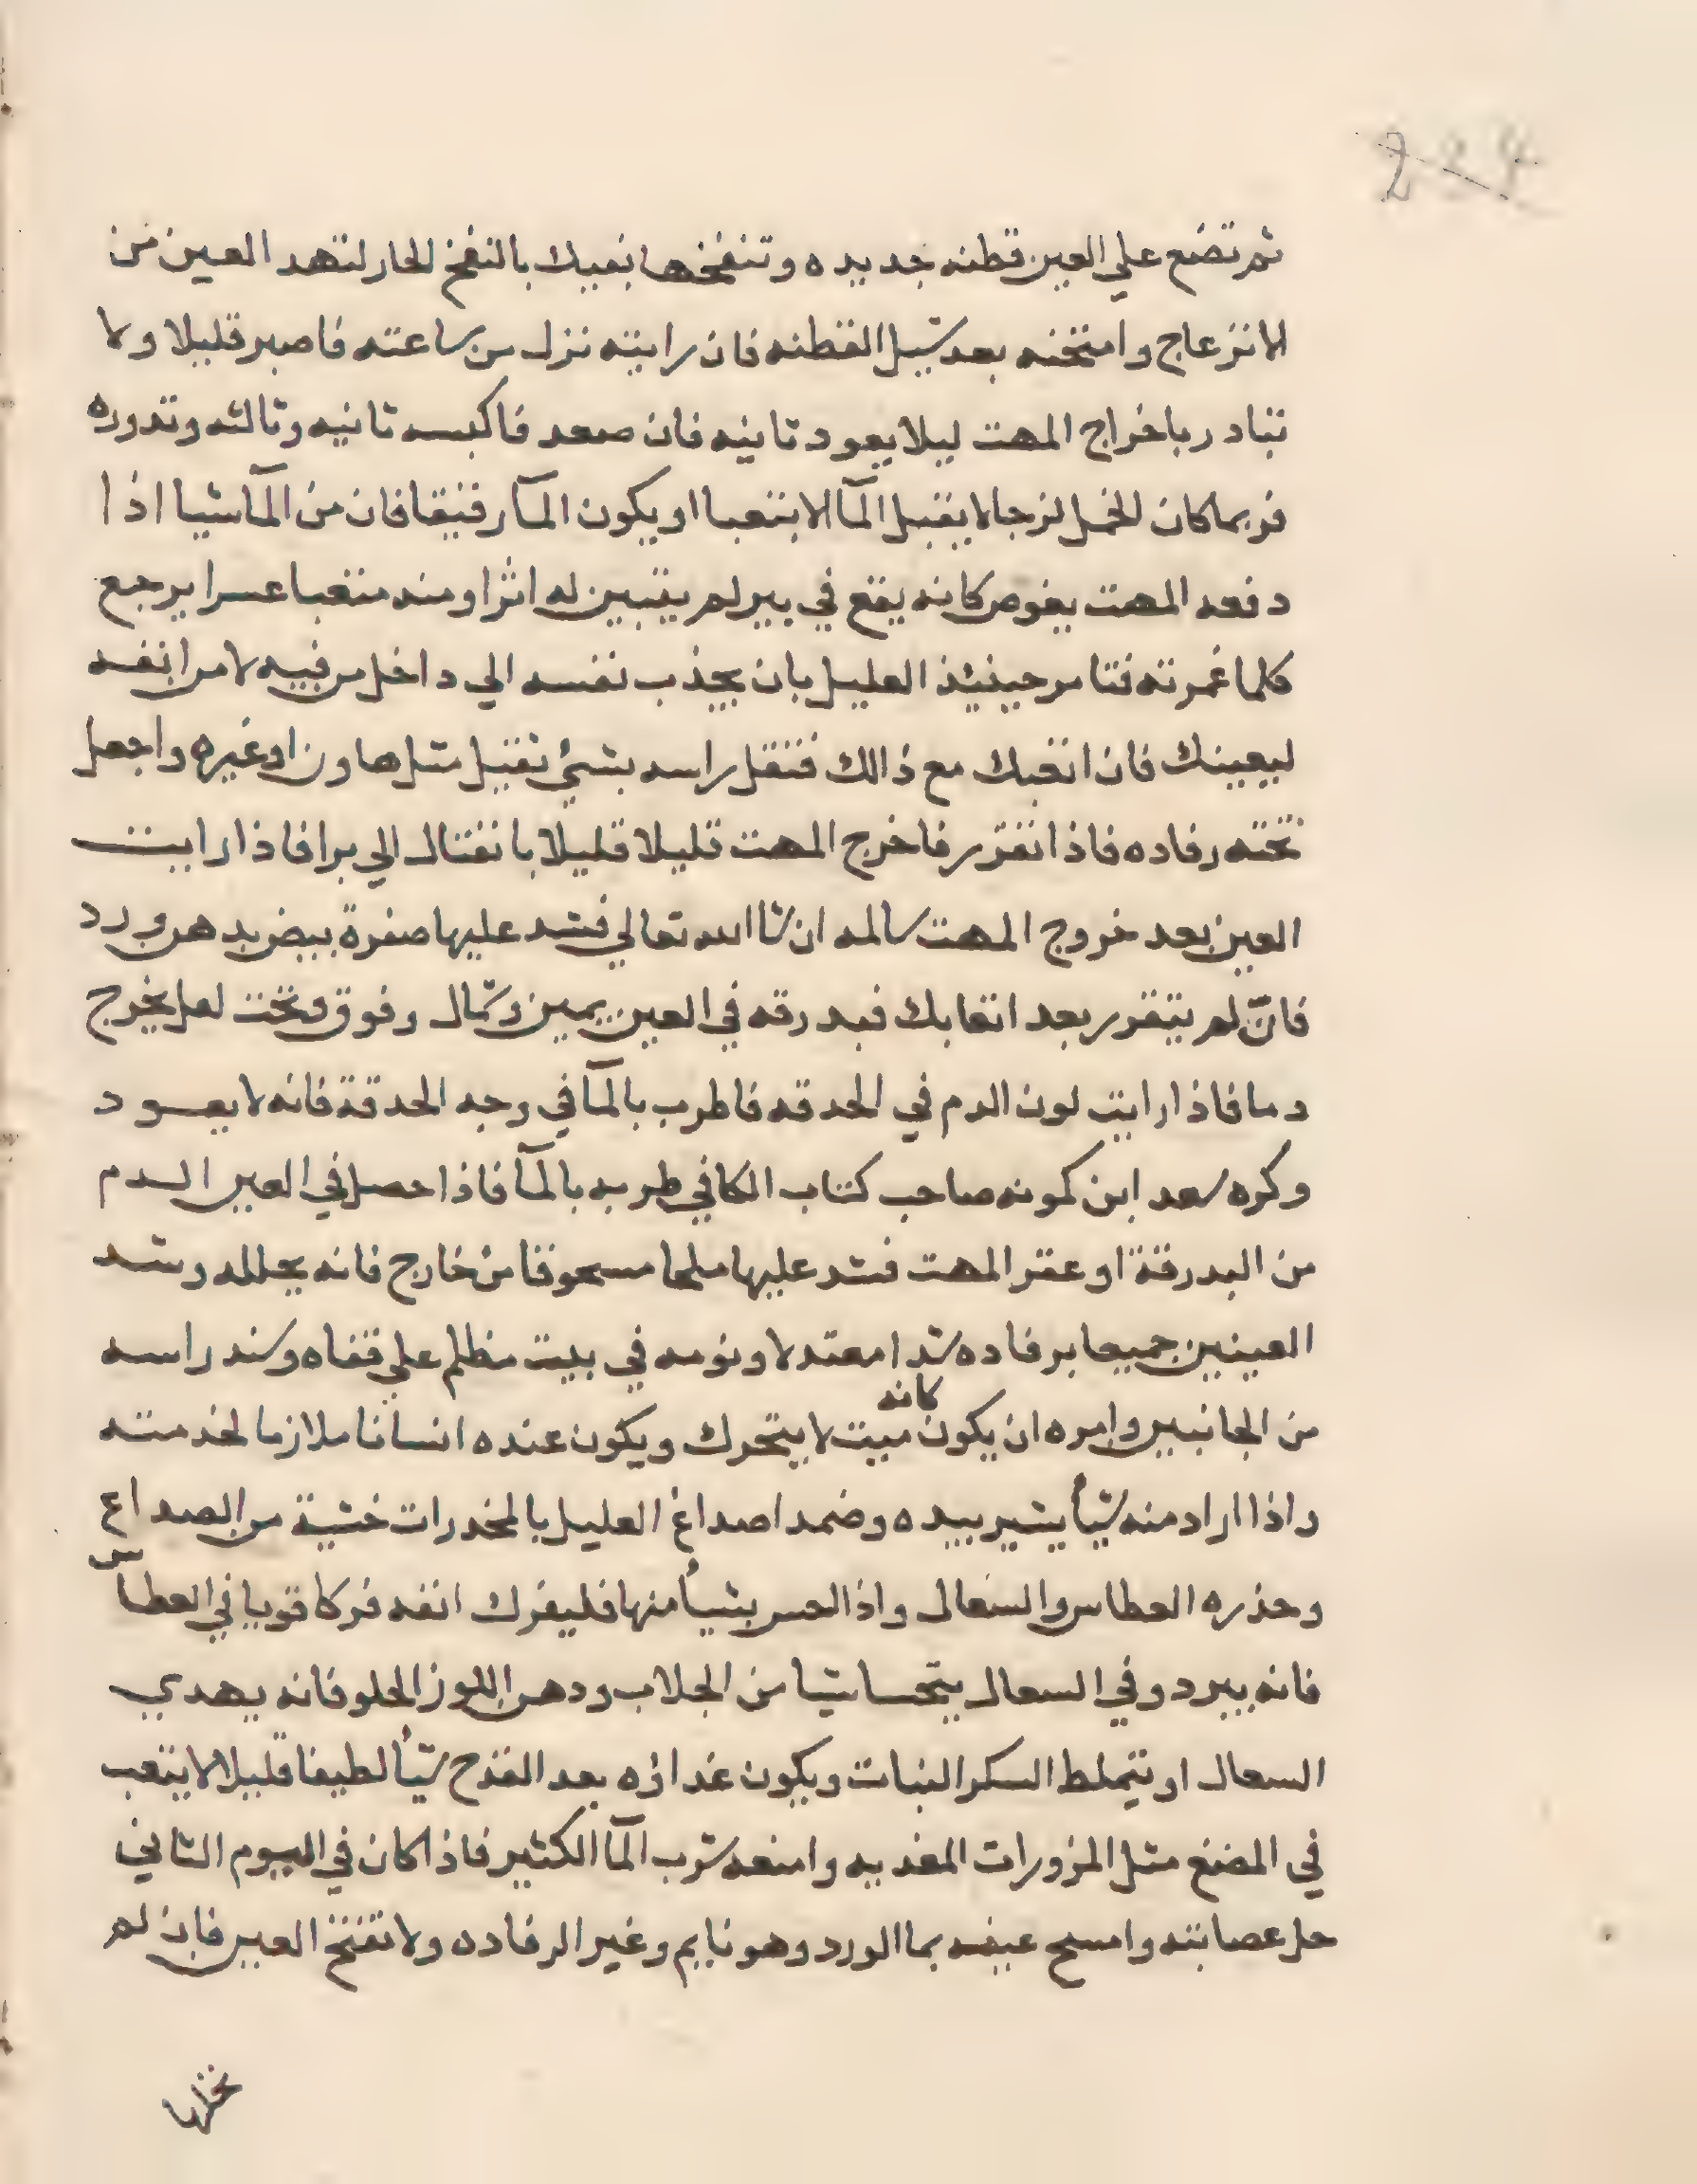 224
ثم تضع علي العين قطنه جديده وتنفخها بفيك بالنفخ الحار لتهد العين من
الانزعاج وامتحنه بعد شيل القطنه فان رايته نزل من ساعته فاصبر قليلا ولا
تبادر باخراج المهت ليلا يعود ثانيه فان صعد فاكبسه ثانيه وثالثه وتدوره
فربما كان الخمل لزجا لا يقبل المآ الا بتعبا او يكون المآ رقيقا فان من المآ شيا اذا
دفعه المهت يغوص كانه يقع في بير لم يتبين له اثرا ومنه متعبا عسرا يرجع
كلما غمزته فتامر حينئذ العليل بان يجذب نفسه الي داخل من فيه لا من انفه
ليعينك فان اتعبك مع ذالك فثقل راسه بشئ ثقيل مثل هاون او غيره واجعل
تحته رفاده فاذا تقرر فاخرج المهت قليلا قليلا بانفتال الي برا فاذا رايت
العين بعد خروج المهت سالمه ان شا الله تعالي فشد عليها صفرة بيض بدهن ورد
فان لم يتقرر بعد اتعابك فبدرقه في العين يمين وشمال وفوق وتحت لعل يخرج
دما فاذا رايت لون الدم في الحدقه فاطرب بالمآ في وجه الحدقة فانه لا يعود
وكره سعد ابن كمونه صاحب كتاب الكافي طربه بالمآ فاذا حصل في العين الدم
من البدرقة او عقر المهت فشد عليها ملحا مسحوقا من خارج فانه يحلله وشد
العينين جميعا برفاده شدا معتدلا ونومه في بيت مظلم علي قفاه وسند راسه
من الجانبين وامره ان يكون كانه ميت لا يتحرك ويكون عنده انسانا ملازما لخدمته
واذا اراد منه شيأ يشير بيده وضمد اصداغ العليل بالمخدرات خشية من الصداع
وحذره العطاس والسعال واذا احس بشيأ منها فليفرك انفه فركا قويا في العطاس
فانه يبرد وفي السعال يتحسا شيا من الجلاب ودهن اللوز الحلو فانه يهدي
السعال او يتملط السكر النبات ويكون غداؤه بعد القدح شيأ لطيفا قليلا لا يتعب
في المضغ مثل المزورات المغديه وامنعه شرب المآ الكثير فاذا كان في اليوم الثاني
حل عصابته وامسح عينه بما الورد وهو نايم وغير الرفاده ولا تفتح العين فان لم